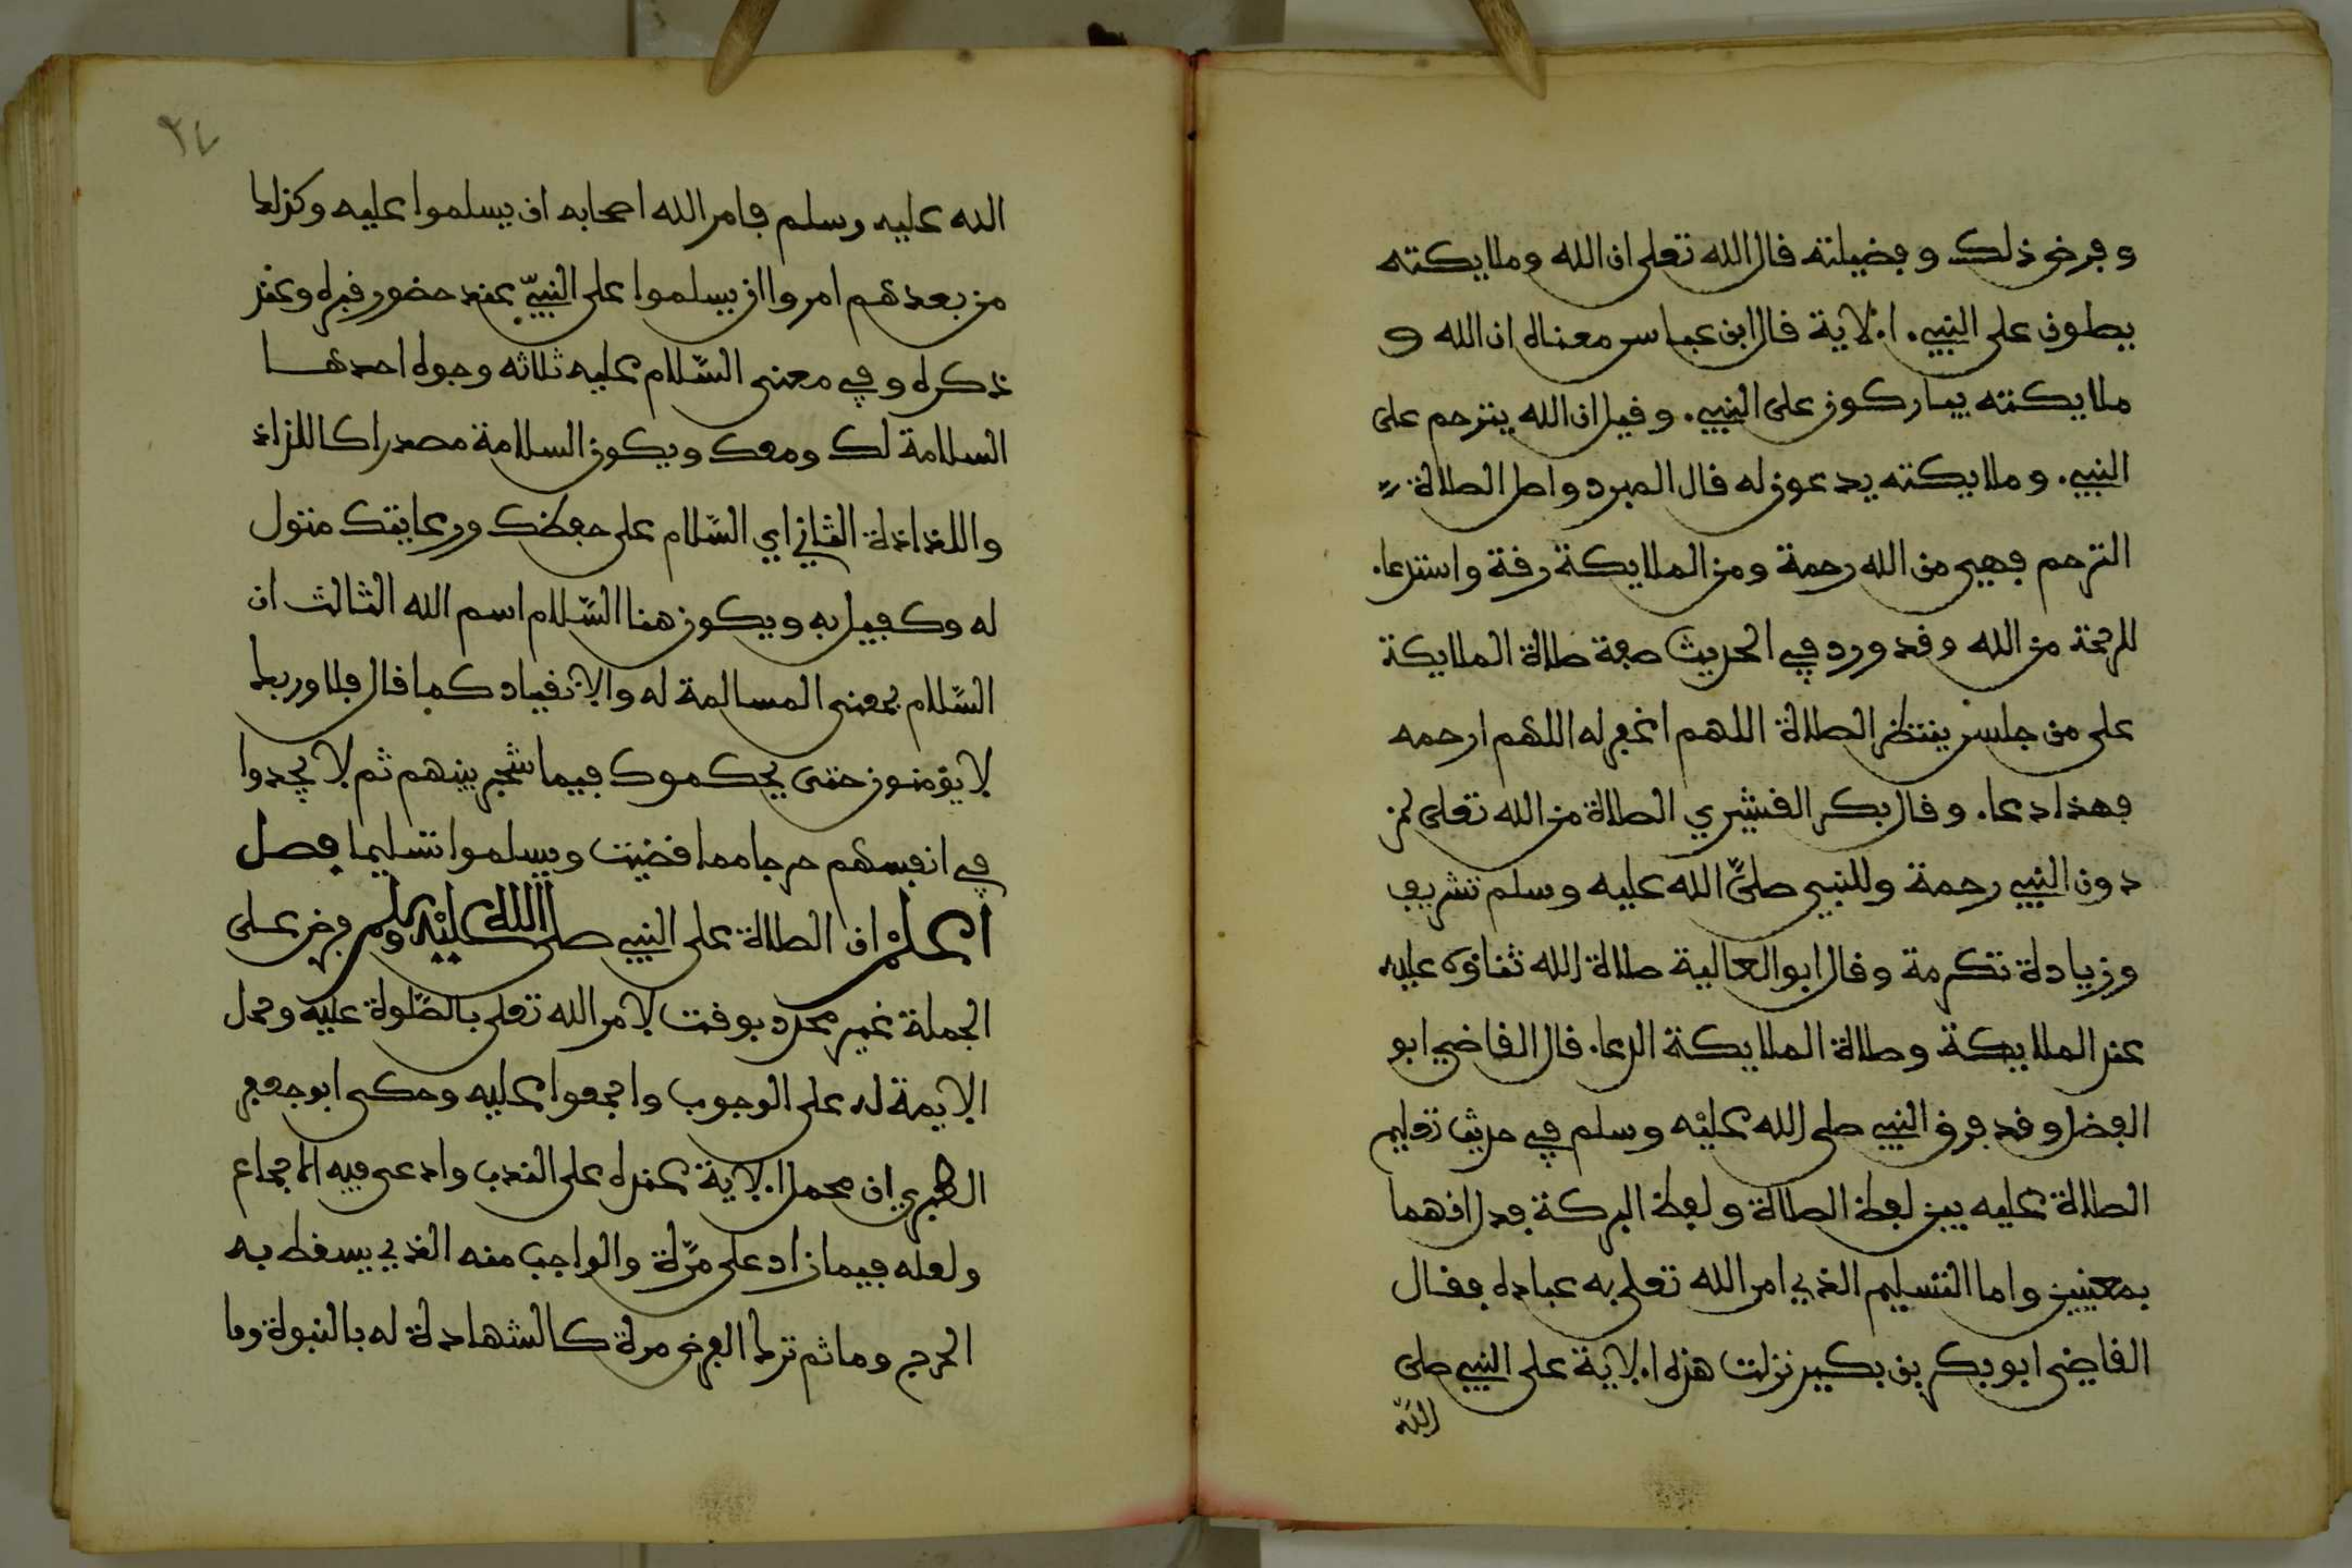 وفرض ذلك وفضيلته قال الله تعلى ان الله وملايكته
يصلون على النبيء الاية قال ابن عباس معناه ان الله و
ملايكته يباركون على النبيء وقيل ان الله يترحم على
النبيء وملايكته يدعون له قال المبرد واصل الصلاة
الترحم فهي من الله رحمة ومن الملايكة رقة واستدعاء
للرحمة من الله وقد ورد في الحديث صفة صلاة الملايكة
على من جلس ينتظر الصلاة اللهم اغفر له اللهم ارحمه
فهذا دعاء وقال بكر القشيري الصلاة من الله تعلى لمن
دون النبيء رحمة وللنبي صلى الله عليه وسلم تشريف
وزيادة تكرمة وقال ابو العالية صلاة الله ثناؤه عليه
عند الملايكة وصلاة الملايكة الدعاء قال القاضي ابو
الفضل وقد فرق النبيء صلى الله عليه وسلم في حديث تعليم
الصلاة عليه بين لفظ الصلاة ولفظ البركة فدل انهما
بمعنيين واما التسليم الذي امر الله تعلى به عباده فقال
القاضي ابو بكر بن بكير نزلت هذه الاية على النبيء صلى
الله
٢٧
الله عليه وسلم فامر الله اصحابه ان يسلموا عليه وكذلك
من بعدهم امروا ان يسلموا على النبيّ عند حضور قبره وعند
ذكره وفي معنى السّلام عليه ثلاثه وجوه احدها
السلامة لك ومعك ويكون السلامة مصدرا كاللذاذ
واللذاذة الثاني اي السّلام على حفظك ورعايتك متول
له وكفيل به ويكون هنا السّلام اسم الله الثالث ان
السّلام بمعنى المسالمة له والانقياد كما قال فلا وربك
لا يؤمنون حتى يحكموك فيما شجر بينهم ثم لا يجدوا
في انفسهم حرجا مما قضيت ويسلموا تسليما فصل
اعلم ان الصلاة على النبيء صلى الله عليه وسلم فرض على
الجملة غير محدد بوقت لامر الله تعلى بالصّلوة عليه وحمل
الايمة له على الوجوب واجمعوا عليه وحكى ابو جعفر
الطبري ان محمل الاية عنده على الندب وادعى فيه الاجماع
ولعله فيما زاد على مرّة والواجب منه الذي يسقط به
الحرج وماثم ترك الفرض مرة كالشهادة له بالنبوة وما